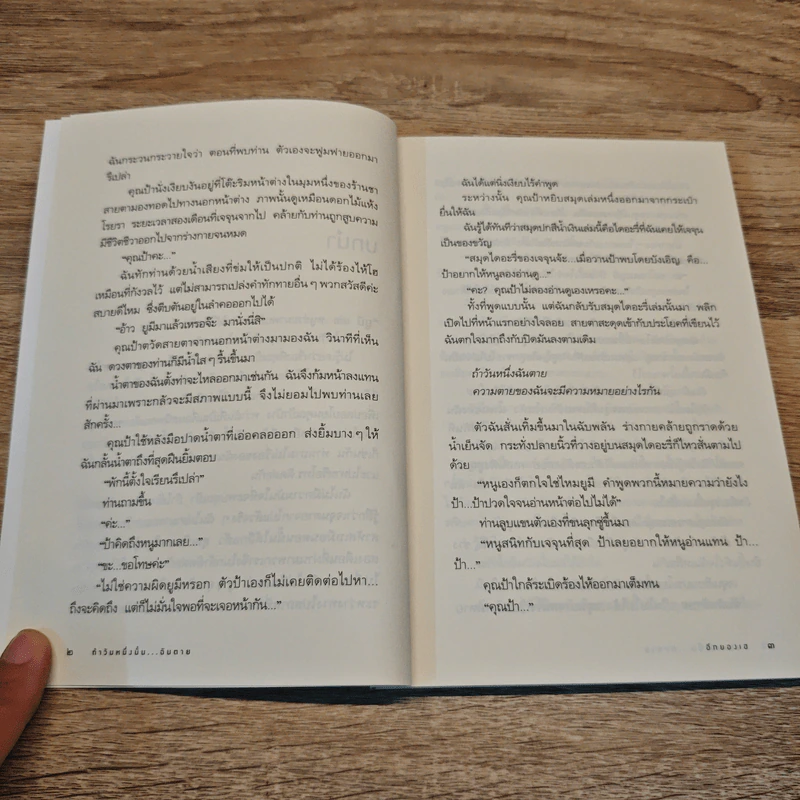 ฉันกระวนกระวายใจว่า ตอนที่พบท่าน ตัวเองจะฟูมฟายออกมา
รึเปล่า
คุณป้านั่งเงียบงันอยู่ที่โต๊ะริมหน้าต่างในมุมหนึ่งของร้านชา
สายตามองทอดไปทางนอกหน้าต่าง ภาพนั้นดูเหมือนดอกไม้แห้ง
โรยรา ระยะเวลาสองเดือนที่เจจุนจากไป คล้ายกับท่านถูกสูบความ
มีชีวิตชีวาออกไปจากร่างกายจนหมด
“คุณป้าคะ...”
ฉันทักท่านด้วยน้ำเสียงที่ข่มให้เป็นปกติ ไม่ได้ร้องไห้โฮ
เหมือนที่กังวลไว้ แต่ไม่สามารถเปล่งคำทักทายอื่นๆ พวกสวัสดีค่ะ
สบายดีไหม ซึ่งตีบตันอยู่ในลำคอออกไปได้
“อ้าว ยูมิมาแล้วเหรอจ๊ะ มานั่งนี่สิ”
คุณป้าตวัดสายตาจากนอกหน้าต่างมามองฉัน วินาทีที่เห็น
ฉัน ดวงตาของท่านก็มีน้ำใสๆ รื้นขึ้นมา
น้ำตาของฉันตั้งท่าจะไหลออกมาเช่นกัน ฉันจึงก้มหน้าลงแทน
ที่ผ่านมาเพราะกลัวจะมีสภาพแบบนี้ จึงไม่ยอมไปพบท่านเลย
สักครั้ง...
คุณป้าใช้หลังมือปาดน้ำตาที่เอ่อคลอออก ส่งยิ้มบางๆ ให้
ฉันกลั้นน้ำตาถึงที่สุดฝืนยิ้มตอบ
“พักนี้ตั้งใจเรียนรึเปล่า”
ท่านถามขึ้น
“ค่ะ...”
“ป้าคิดถึงหนูมากเลย...”
“ขะ...ขอโทษค่ะ”
“ไม่ใช่ความผิดยูมีหรอก ตัวป้าเองก็ไม่เคยติดต่อไปหา...
ถึงจะคิดถึง แต่ก็ไม่มั่นใจพอที่จะเจอหน้ากัน...”
๒ ถ้าวันหนึ่งฉัน...ฉันตาย
ฉันได้แต่นิ่งเงียบไร้คำพูด
ระหว่างนั้น คุณป้าหยิบสมุดเล่มหนึ่งออกมาจากกระเป๋า
ยื่นให้ฉัน
ฉันรู้ได้ทันทีว่าสมุดปกสีน้ำเงินเล่มนี้คือไดอะรี่ที่ฉันเคยให้เจจุน
เป็นของขวัญ
“สมุดไดอะรี่ของเจจุนจ้ะ...เมื่อวานป้าพบโดยบังเอิญ คือ...
ป้าอยากให้หนูลองอ่านดู...”
“คะ? คุณป้าไม่ลองอ่านดูเองเหรอคะ...”
ทั้งที่พูดแบบนั้น แต่ฉันกลับรับสมุดไดอะรี่เล่มนั้นมา พลิก
เปิดไปที่หน้าแรกอย่างใจลอย สายตาสะดุดเข้ากับประโยคที่เขียนไว้
ฉันตกใจมากถึงกับปิดมันลงตามเดิม
ถ้าวันหนึ่งฉันตาย
ความตายของฉันจะมีความหมายอย่างไรกัน
ตัวฉันสั่นเทิ้มขึ้นมาในฉับพลัน ร่างกายคล้ายถูกราดด้วย
น้ำเย็นจัด กระทั่งปลายนิ้วที่วางอยู่บนสมุดไดอะรี่ก็ไหวสั่นตามไป
ด้วย
“หนูเองก็ตกใจใช่ไหมยูมี คำพูดพวกนี้หมายความว่ายังไง
ป้า...ป้าปวดใจจนอ่านหน้าต่อไปไม่ได้”
ท่านลูบแขนตัวเองที่ขนลุกซู่ขึ้นมา
“หนูสนิทกับเจจุนที่สุด ป้าเลยอยากให้หนูอ่านแทน ป้า...
ป้า...”
คุณป้าใกล้ระเบิดร้องไห้ออกมาเต็มทน
“คุณป้า...”
อีกยองเฮ ๓